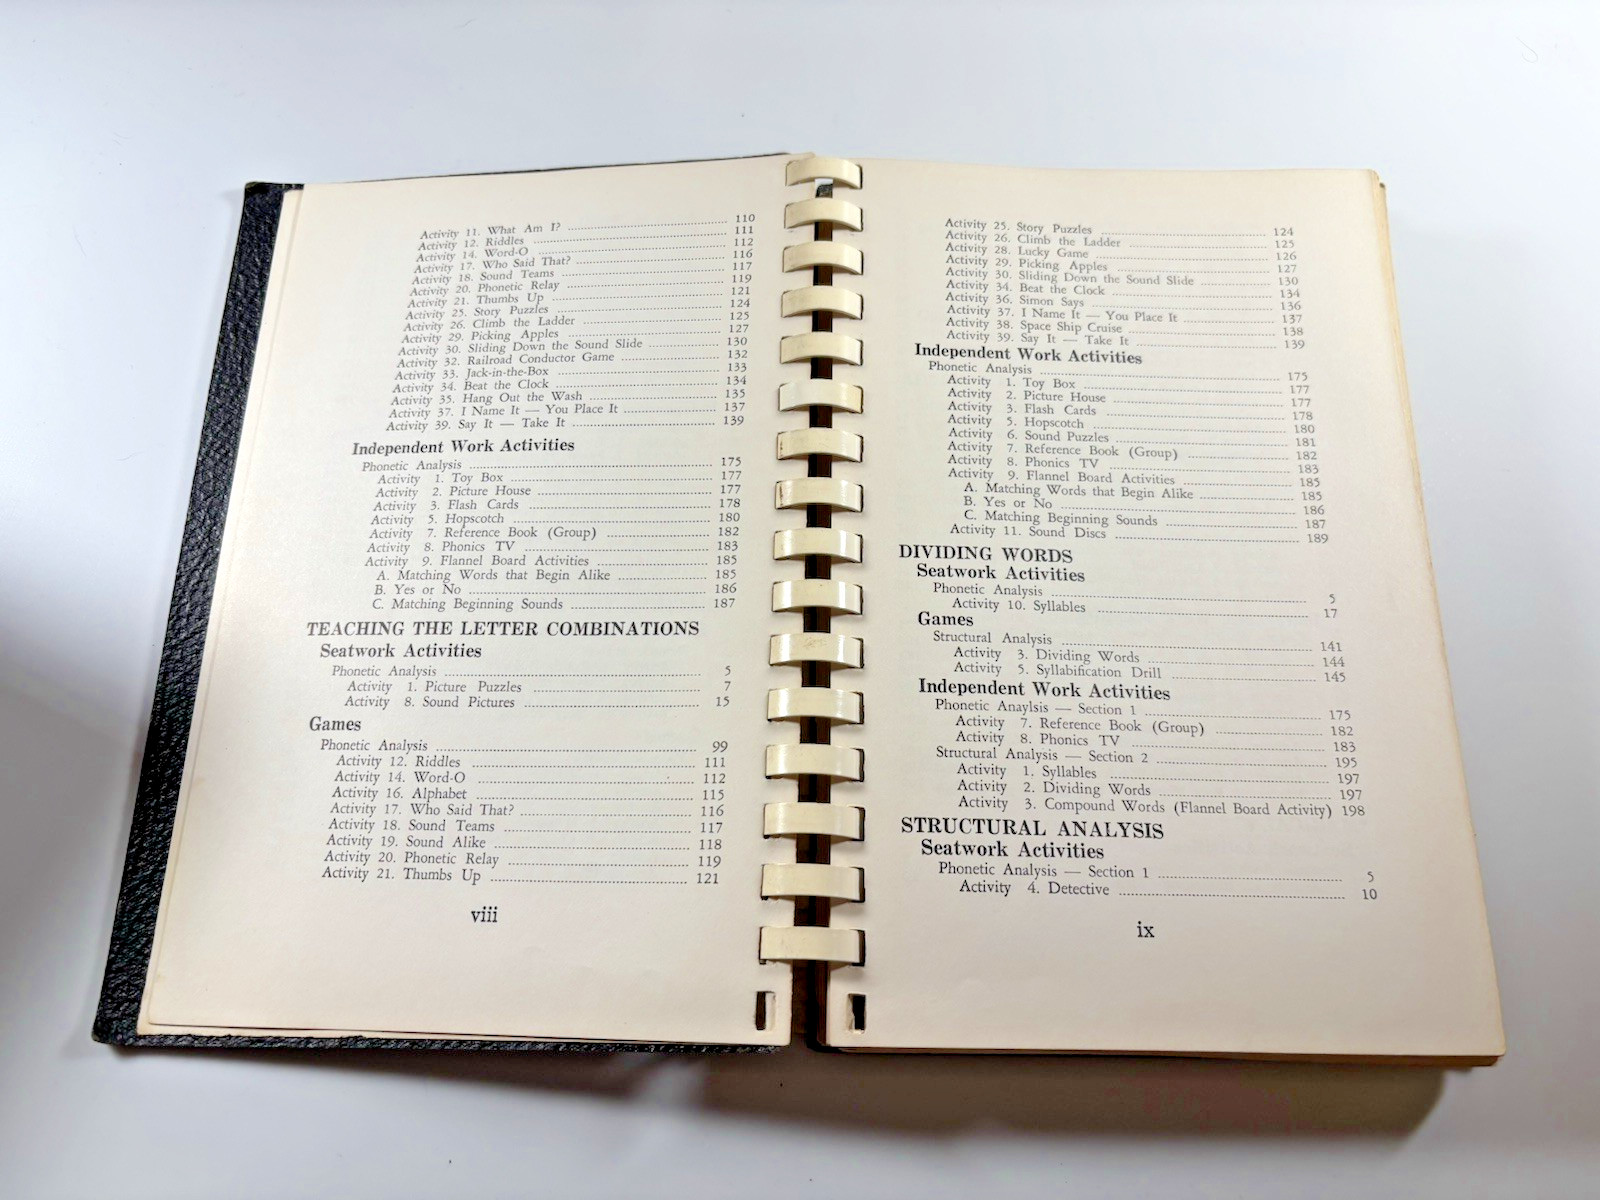 Activity 11. What Am I? 110
Activity 12. Riddles 111
Activity 14. Word-O 112
Activity 17. Who Said That? 116
Activity 18. Sound Teams 117
Activity 20. Phonetic Relay 119
Activity 21. Thumbs Up 121
Activity 25. Story Puzzles 124
Activity 26. Climb the Ladder 125
Activity 29. Picking Apples 127
Activity 30. Sliding Down the Sound Slide 130
Activity 32. Railroad Conductor Game 132
Activity 33. Jack-in-the-Box 133
Activity 34. Beat the Clock 134
Activity 35. Hang Out the Wash 135
Activity 37. I Name It — You Place It 137
Activity 39. Say It — Take It 139
Independent Work Activities
Phonetic Analysis 175
Activity 1. Toy Box 177
Activity 2. Picture House 177
Activity 3. Flash Cards 178
Activity 5. Hopscotch 180
Activity 7. Reference Book (Group) 182
Activity 8. Phonics TV 183
Activity 9. Flannel Board Activities 185
A. Matching Words that Begin Alike 185
B. Yes or No 186
C. Matching Beginning Sounds 187
TEACHING THE LETTER COMBINATIONS
Seatwork Activities
Phonetic Analysis 5
Activity 1. Picture Puzzles 7
Activity 8. Sound Pictures 15
Games
Phonetic Analysis 99
Activity 12. Riddles 111
Activity 14. Word-O 112
Activity 16. Alphabet 115
Activity 17. Who Said That? 116
Activity 18. Sound Teams 117
Activity 19. Sound Alike 118
Activity 20. Phonetic Relay 119
Activity 21. Thumbs Up 121
viii
Activity 25. Story Puzzles 124
Activity 26. Climb the Ladder 125
Activity 28. Lucky Game 126
Activity 29. Picking Apples 127
Activity 30. Sliding Down the Sound Slide 130
Activity 34. Beat the Clock 134
Activity 36. Simon Says 136
Activity 37. I Name It — You Place It 137
Activity 38. Space Ship Cruise 138
Activity 39. Say It — Take It 139
Independent Work Activities
Phonetic Analysis 175
Activity 1. Toy Box 177
Activity 2. Picture House 177
Activity 3. Flash Cards 178
Activity 5. Hopscotch 180
Activity 6. Sound Puzzles 181
Activity 7. Reference Book (Group) 182
Activity 8. Phonics TV 183
Activity 9. Flannel Board Activities 185
A. Matching Words that Begin Alike 185
B. Yes or No 186
C. Matching Beginning Sounds 187
Activity 11. Sound Discs 189
DIVIDING WORDS
Seatwork Activities
Phonetic Analysis 5
Activity 10. Syllables 17
Games
Structural Analysis 141
Activity 3. Dividing Words 144
Activity 5. Syllabification Drill 145
Independent Work Activities
Phonetic Anaylsis — Section 1 175
Activity 7. Reference Book (Group) 182
Activity 8. Phonics TV 183
Structural Analysis — Section 2 195
Activity 1. Syllables 197
Activity 2. Dividing Words 197
Activity 3. Compound Words (Flannel Board Activity) 198
STRUCTURAL ANALYSIS
Seatwork Activities
Phonetic Analysis — Section 1 5
Activity 4. Detective 10
ix